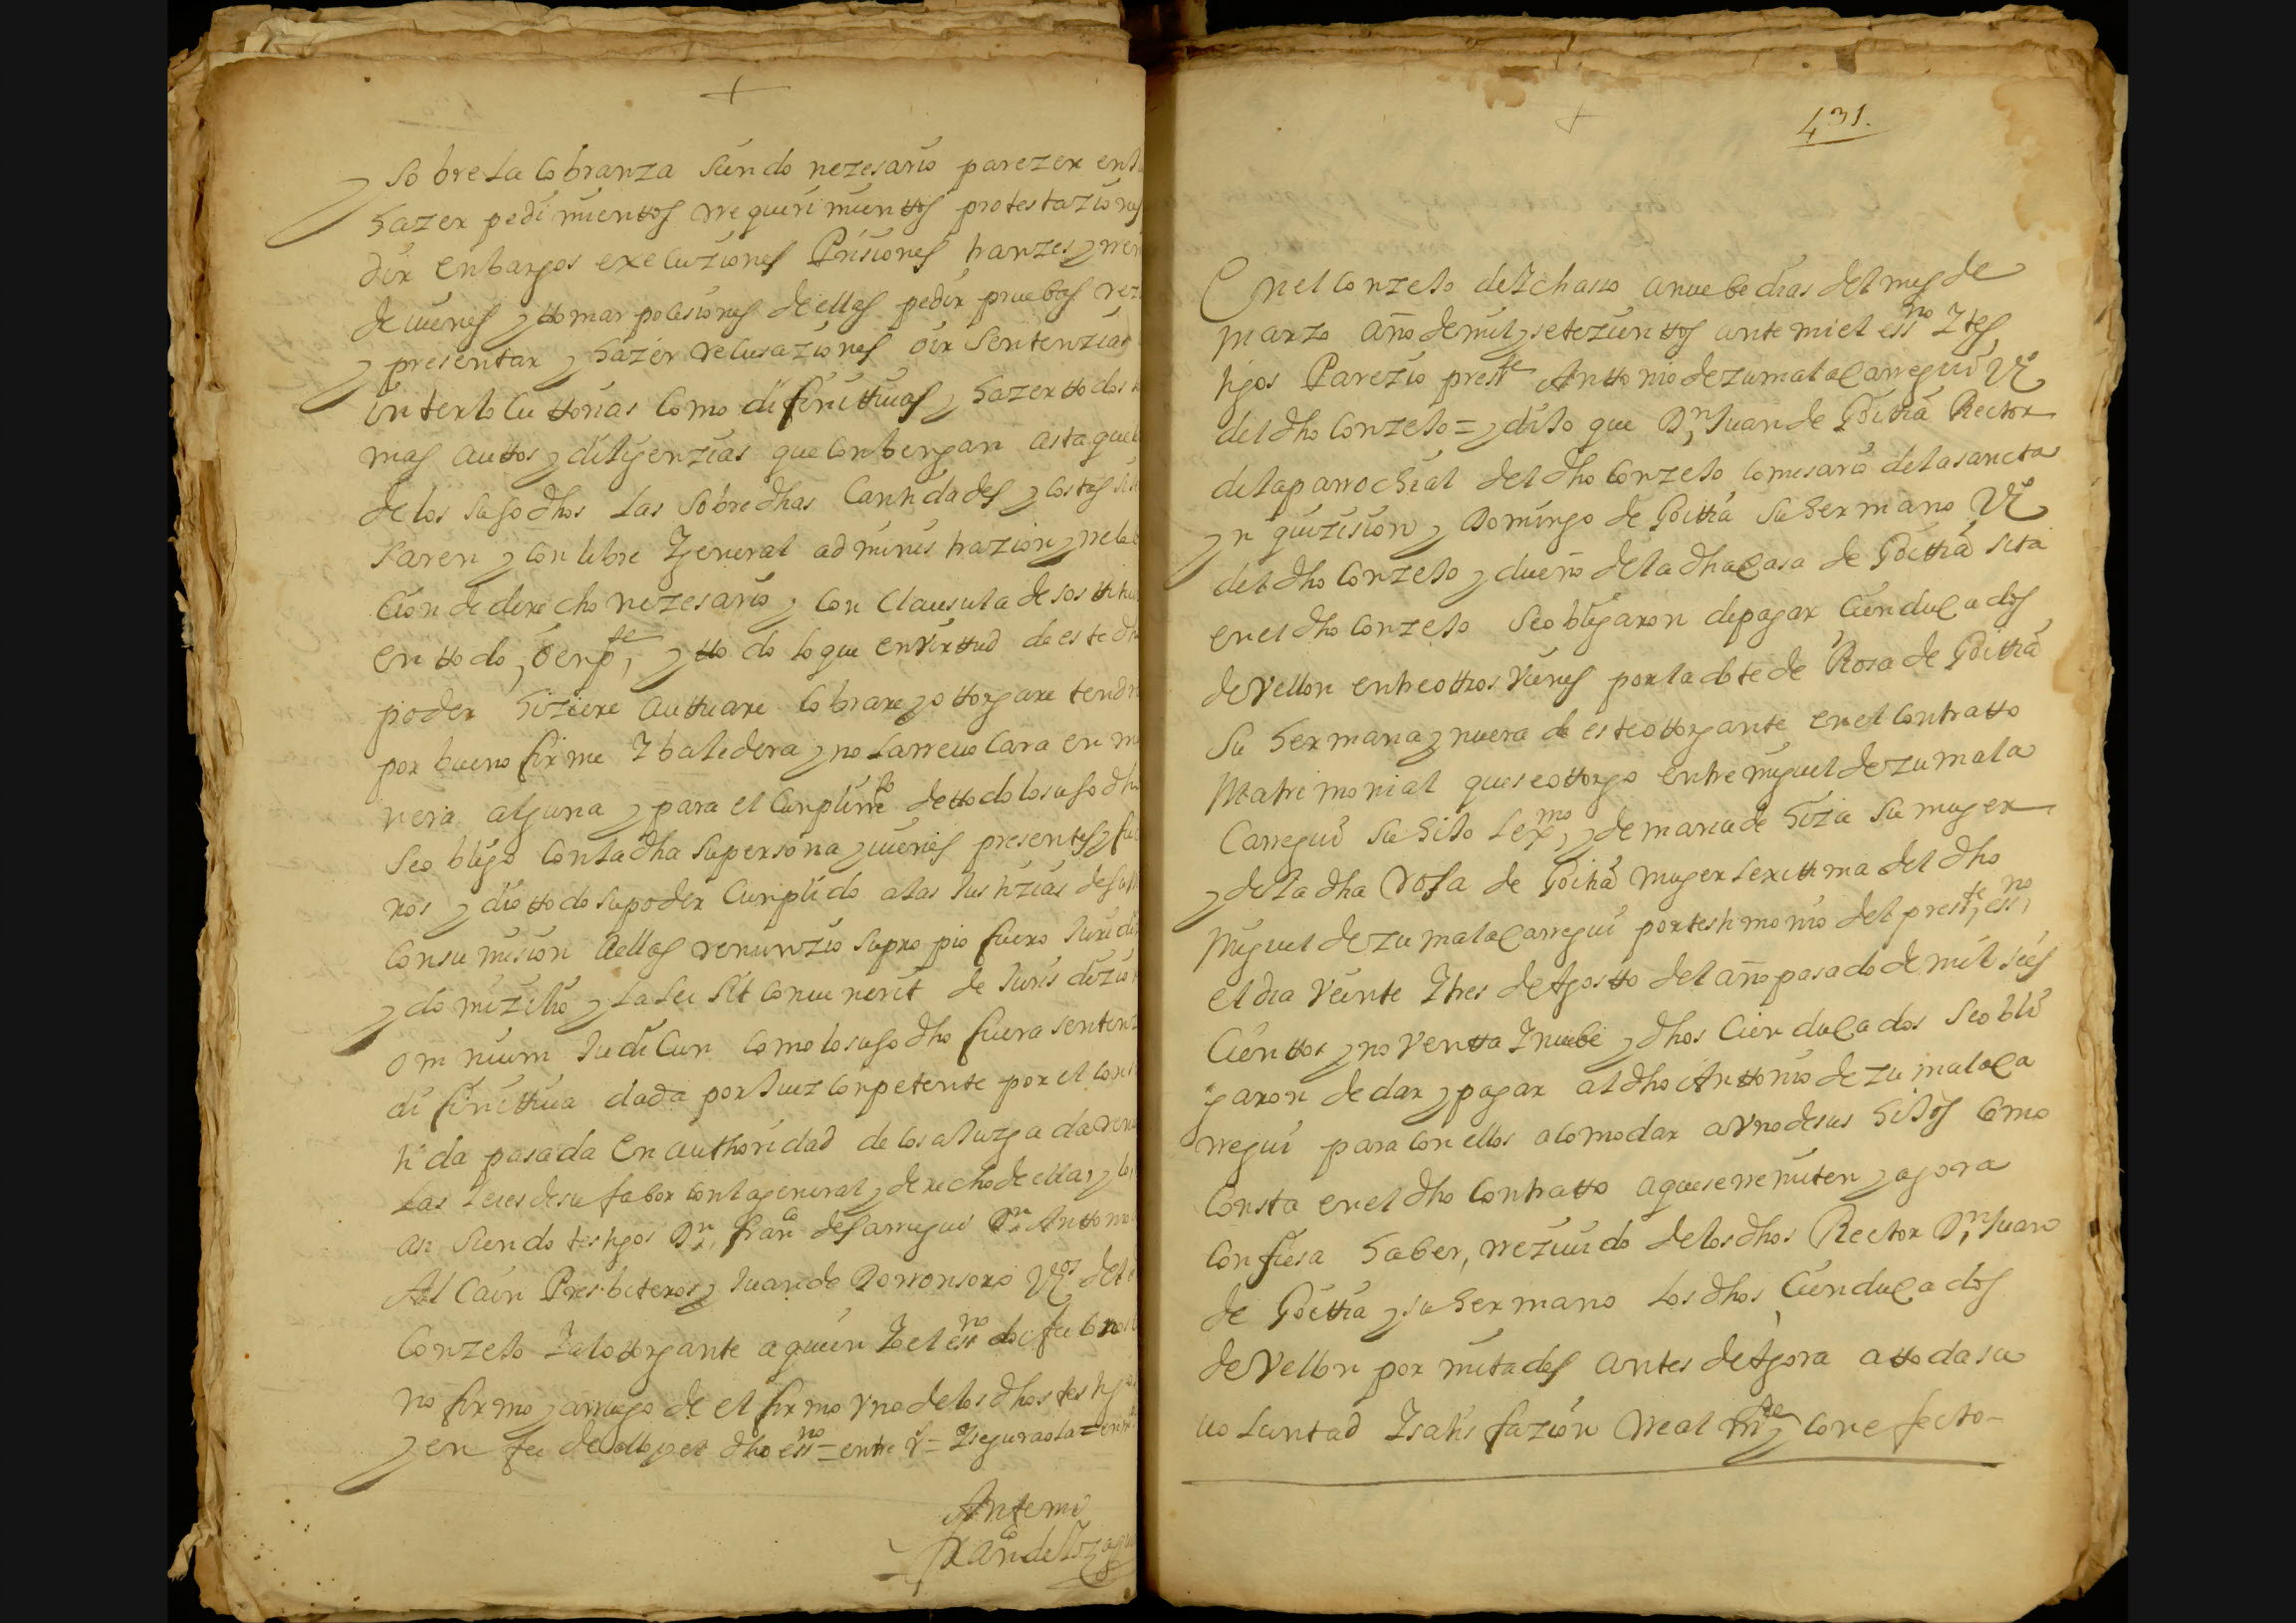 y sobre la cobranza siendo nezesario parezer en
hazer pedimienttos rrequerimienttos protestaziones
dir enbargos execuziones Prisiones tranzes y rrem
de vienes y ttomar posesiones de ellas pedir pruebas
y presentar y hazer recusaziones oir Sentenzias
interlocuttorias como difinittivas y hazer ttodos
mas auttos y dilixenzias que conbengan asta que
de los susodhos las sobredhas Canttidades y costas
y con libre y General administrazion y
cion de derecho nezesario y con clausula de
en ttodo, o en pte, y ttodo lo que en virttud de este
poder hiziere auttuare cobrare y ottorgare
por bueno firme y baledera y no la rrevocara en
nera alguna y para el Cunplimto de ttodo lo susodho
se obligo con la dha su persona y vienes presentes y
ros y dio ttodo su poder Cunplido a las Justizias de su
con sumision a ellas renunzio su propio fuero
y domizilio y la lei sit convenerit de Jurisdizion
omnium Judicun como lo susodho fuera
difinittiva dada por Juez conpetente por el
tida pasada en authoridad de cosa Juzgada
las leies de su fabor con la general y derecho de ellas y
asi siendo testigos Dn, franco de Dn Anttonio
Alcain Presbiteros y Juan de Dorronsoro Vos del
Conzejo y al ottorgante a quien yo el essno doi fee
no firmo y a rruego de el firmo vno de los dhos testigos
y en fee de ello yo el dho essno = entre =
Ante mi
franco de
431.
En el conzejo de Ichaso a nuebe dias del mes de
marzo año de mil y setezienttos ante mi el essno y tes
tigos Parezio preste Anttonio de zumalacarregui Vo
del dho Conzejo = y dijo que Dn, Juan de Goittia Rector
de la parrochial del dho Conzejo comisario de la sancta
ynquizision y Domingo de Goittia su hermano Vo
del dho Conzejo y dueño de la dha Casa de Goittia sita
en el dho conzejo se obligaron de pagar cien ducados
de vellon entre ottros vienes por la dote de Rosa de Goittia
su hermana y nuera de este ottorgante en el contratto
Matrimonial que se ottorgo entre miguel de zumala
Carregui su hijo lexmo, y de maria de hiza su muger
y de la dha Rosa de Goitia muger lexittima del dho
Miguel de zumalacarregui por testimonio del preste, essno,
el dia veinte y tres de Agostto del año pasado de mil seis
Cienttos y noventta y nuebe y dhos cien ducados se obli
garon de dar y pagar al dho Anttonio de zumalaca
rregui para con ellos acomodar a vno de sus hijos como
Consta en el dho Contratto a que se rremiten y agora
confiesa haber, rrezivido de los dhos Rector Dn, Juan
de Goittia y su hermano los dhos, cien ducados
de vellon por mitades antes de Agora a ttoda su
voluntad y satisfazion rreal mte y con efecto-